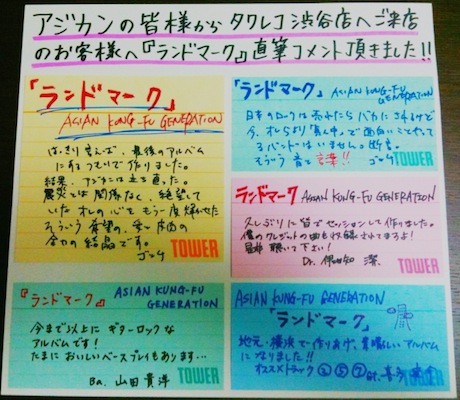 アジカンの皆様からタワレコ渋谷店へご来店
のお客様へ『ランドマーク』直筆コメント頂きました!!
「ランドマーク」
ASIAN KUNG-FU GENERATION
はっきり言えば、最後のアルバム
にするつもりで作りました。
結果、アジカンは立ち直った。
震災とは関係なく、絶望して
いたオレの心をもう一度輝かせた
そういう希望の、愛と
の結晶です。
ゴッチ
TOWER
「ランドマーク」
ASIAN KUNG-FU
GENERATION
日本のロックは売れたらバカにされるけど
今、オレらより「真ん中」で面白いことやってる
バンドはいません。断言。
そういう音と言葉!! ゴッチ
TOWER
ランドマーク ASIAN KUNG-FU GENERATION
久しぶりに皆でセッションして作りました。
僕のクレジットの曲も収録されてますよ!
是非聴いて下さい!
Dr. 伊地知 潔.
TOWER
『ランドマーク』
ASIAN KUNG-FU
GENERATION
今まで以上にギターロックな
アルバムです!
たまにおいしいベースプレイもあります…
Ba. 山田貴洋
TOWER
ASIAN KUNG-FU GENERATION
「ランドマーク」
地元・横浜で作りあげ、素晴しいアルバム
になりました!!
オススメトラック ⑤ ⑦ Gt. 喜多
TOWER